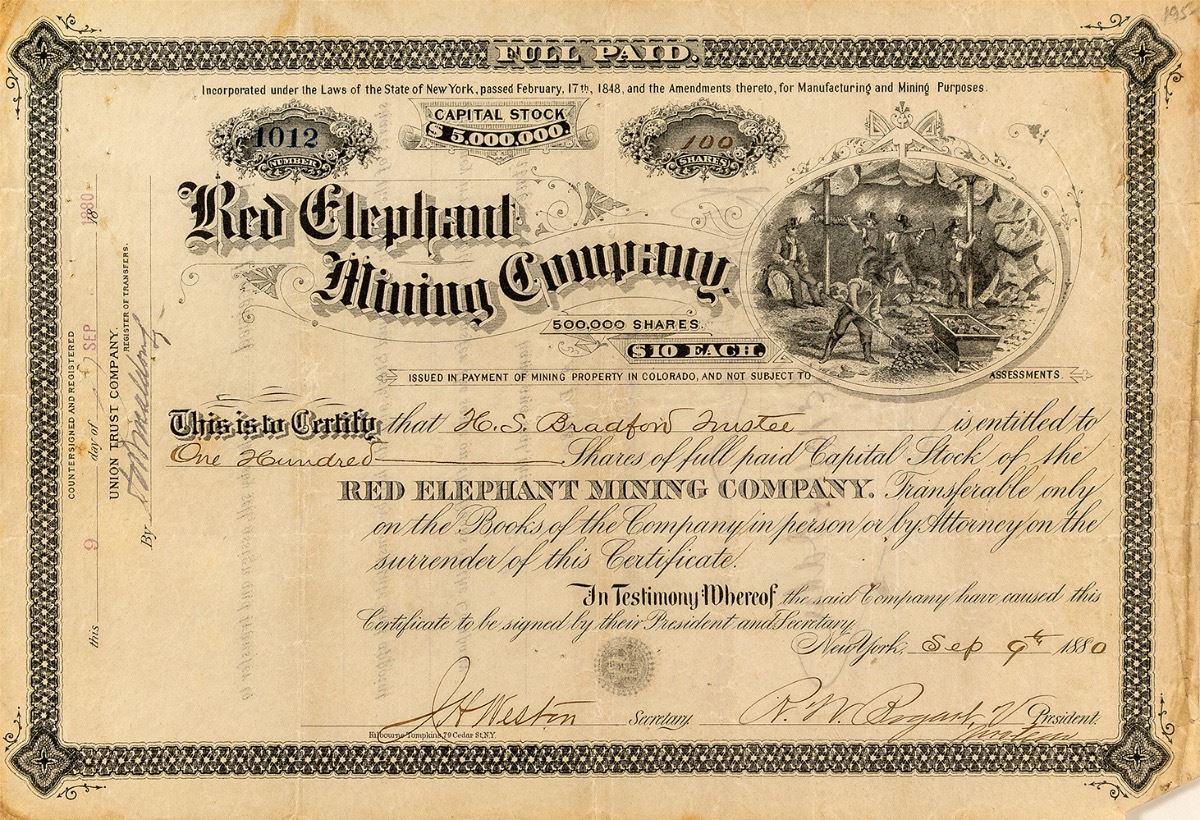 195
FULL PAID.
Incorporated under the Laws of the State of New York, passed February, 17th, 1848, and the Amendments thereto, for Manufacturing and Mining Purposes.
1012
NUMBER
CAPITAL STOCK
$5,000,000.
100
SHARES
Red Elephant
Mining Company.
500,000 SHARES.
$10 EACH.
ISSUED IN PAYMENT OF MINING PROPERTY IN COLORADO, AND NOT SUBJECT TO ASSESSMENTS
This is to Certify that H. S. Bradford Trustee is entitled to
One Hundred Shares of full paid Capital Stock of the
RED ELEPHANT MINING COMPANY. Transferable only
on the Books of the Company in person or by Attorney on the
surrender of this Certificate.
In Testimony Whereof the said Company have caused this
Certificate to be signed by their President and Secretary
New York, Sep 9th 1880
J H Weston Secretary R. W. Bogart V President.
Kilbourne Tompkins, 79 Cedar St. N.Y.
COUNTERSIGNED AND REGISTERED
this 9 day of SEP 1880 18
UNION TRUST COMPANY.
REGISTER OF TRANSFERS.
By